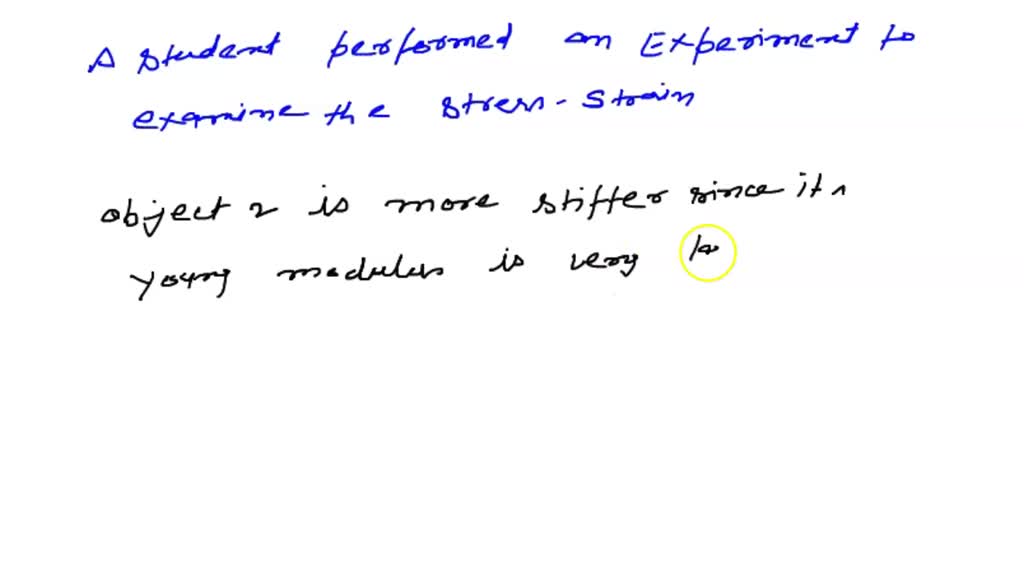 A student performed an Experiment to
examine the stress-strain
object 2 is more stiffer since its
young modulus is very